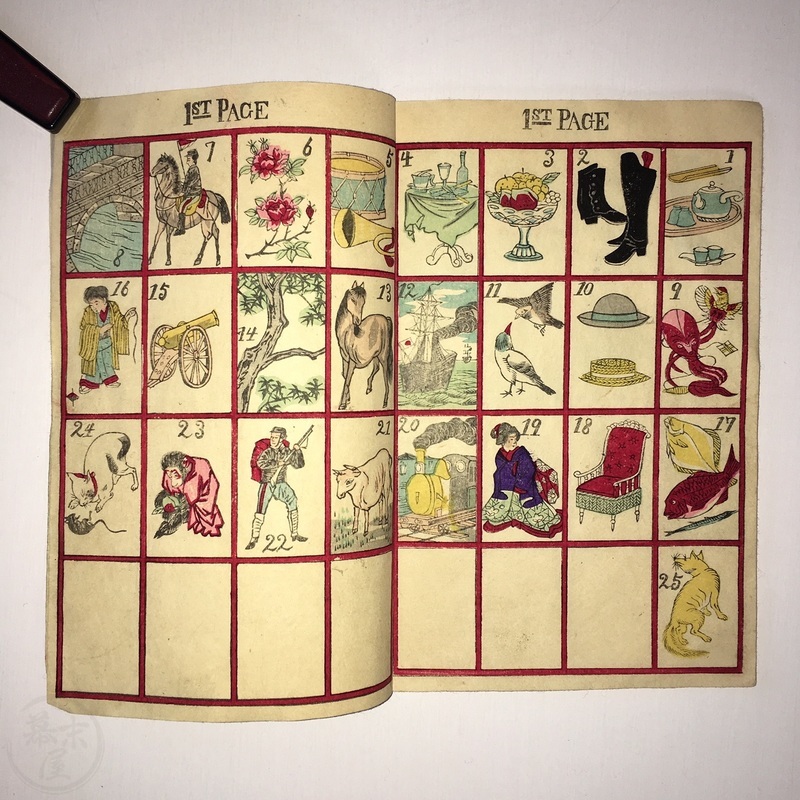 1ST PAGE
8 7 6 5
16 15 14 13
24 23 22 21
1ST PAGE
4 3 2 1
12 11 10 9
20 19 18 17
25
幕末屋